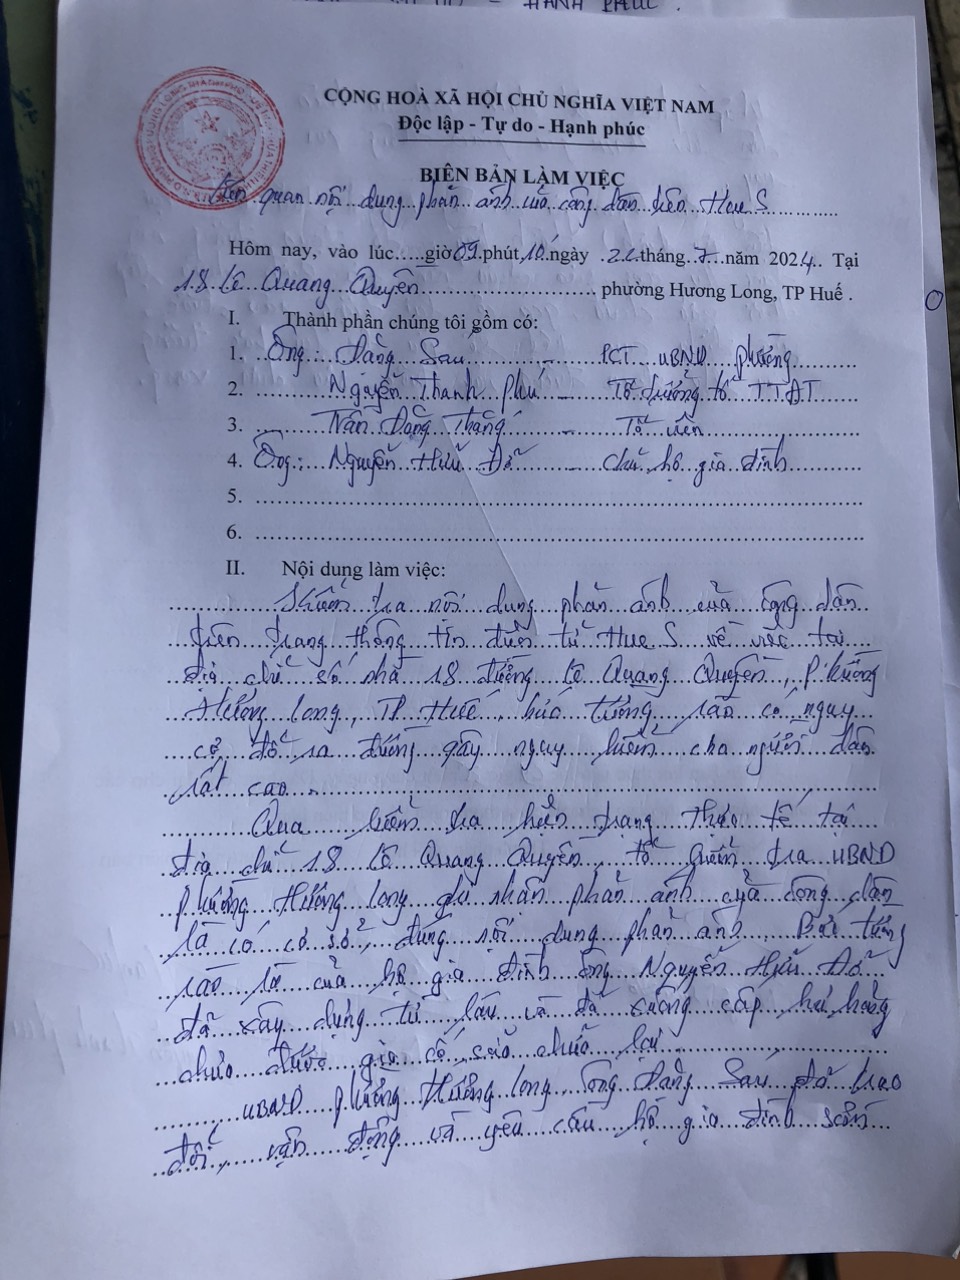 HẠNH PHÚC.
CỘNG HOÀ XÃ HỘI CHỦ NGHĨA VIỆT NAM
Độc lập - Tự do - Hạnh phúc
BIÊN BẢN LÀM VIỆC
Liên quan nội dung phản ánh của công dân trên Hue S
Hôm nay, vào lúc.....giờ 09 phút 10 ngày 22 tháng 7 năm 2024. Tại
18 Lê Quang Quyền phường Hương Long, TP Huế .
I. Thành phần chúng tôi gồm có:
1. Ông: Đặng Sáu - PCT UBND phường
2. Nguyễn Thanh Phú - Tổ trưởng tổ TTĐT
3. Trần Đặng Thắng - Tổ viên
4. Ông: Nguyễn Hữu Đỗ - Chủ hộ gia đình
5.
6.
II. Nội dung làm việc:
Kiểm tra nội dung phản ánh của công dân
trên trang thông tin điện tử Hue S về việc tại
địa chỉ số nhà 18 đường Lê Quang Quyền, phường
Hương Long, TP Huế, bức tường rào có nguy
cơ đổ ra đường gây nguy hiểm cho người dân
rất cao.
Qua kiểm tra hiện trạng thực tế tại
địa chỉ 18 Lê Quang Quyền, tổ kiểm tra UBND
phường Hương Long ghi nhận phản ánh của công dân
là có cơ sở, đúng nội dung phản ánh. Bức tường
rào là của hộ gia đình ông Nguyễn Hữu Đỗ
đã xây dựng từ lâu và đã xuống cấp hư hỏng
chưa được gia cố, sửa chữa lại
UBND phường Hương Long, ông Đặng Sáu đã trao
đổi, vận động và yêu cầu hộ gia đình sớm